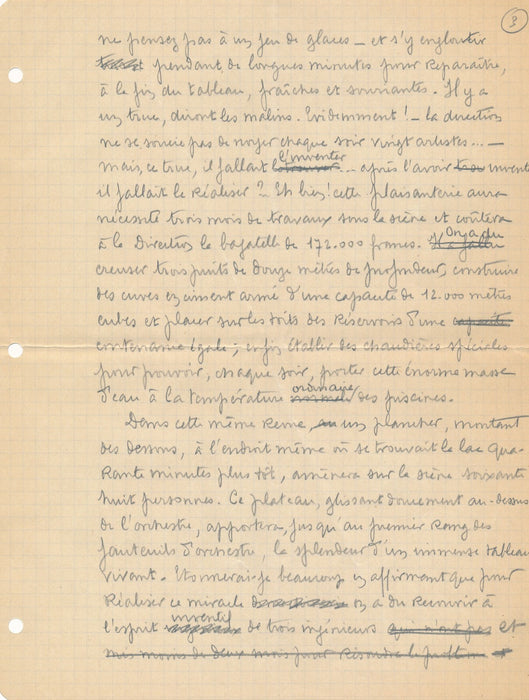 3
ne pensez pas à un jeu de glaces – et s'y engloutir
pendant de longues minutes pour reparaître,
à la fin du tableau, fraîches et souriantes. Il y a
un truc, diront les malins. Evidemment ! – la direction
ne se soucie pas de noyer chaque soir vingt artistes... –
mais, ce truc, il fallait l'inventer... après l'avoir inventé
il fallait le réaliser ? Eh bien ! cette plaisanterie aura
nécessité trois mois de travaux sous la scène et coûtera
à la Direction la bagatelle de 172.000 francs. On a du
creuser trois puits de douze mètres de profondeur, construire
des cuves en ciment armé d'une capacité de 12.000 mètres
cubes et placer sur les toits des réservoirs d'une capacité
contenance égale ; enfin établir des chaudières spéciales
pour pouvoir, chaque soir, porter cette énorme masse
d'eau à la température ordinaire des piscines.
Dans cette même Revue, un plancher, montant
des dessous, à l'endroit même où se trouvait le lac qua-
rante minutes plus tôt, amènera sur la scène soixante
huit personnes. Ce plateau, glissant doucement au-dessus
de l'orchestre, apportera, jusqu'au premier rang des
fauteuils d'orchestre, la splendeur d'un immense tableau
vivant. Etonnerai-je beaucoup en affirmant que pour
réaliser ce miracle on a du recourir à
l'esprit inventif de trois ingénieurs qui n'ont pas et
mis moins de deux mois pour résoudre le problème